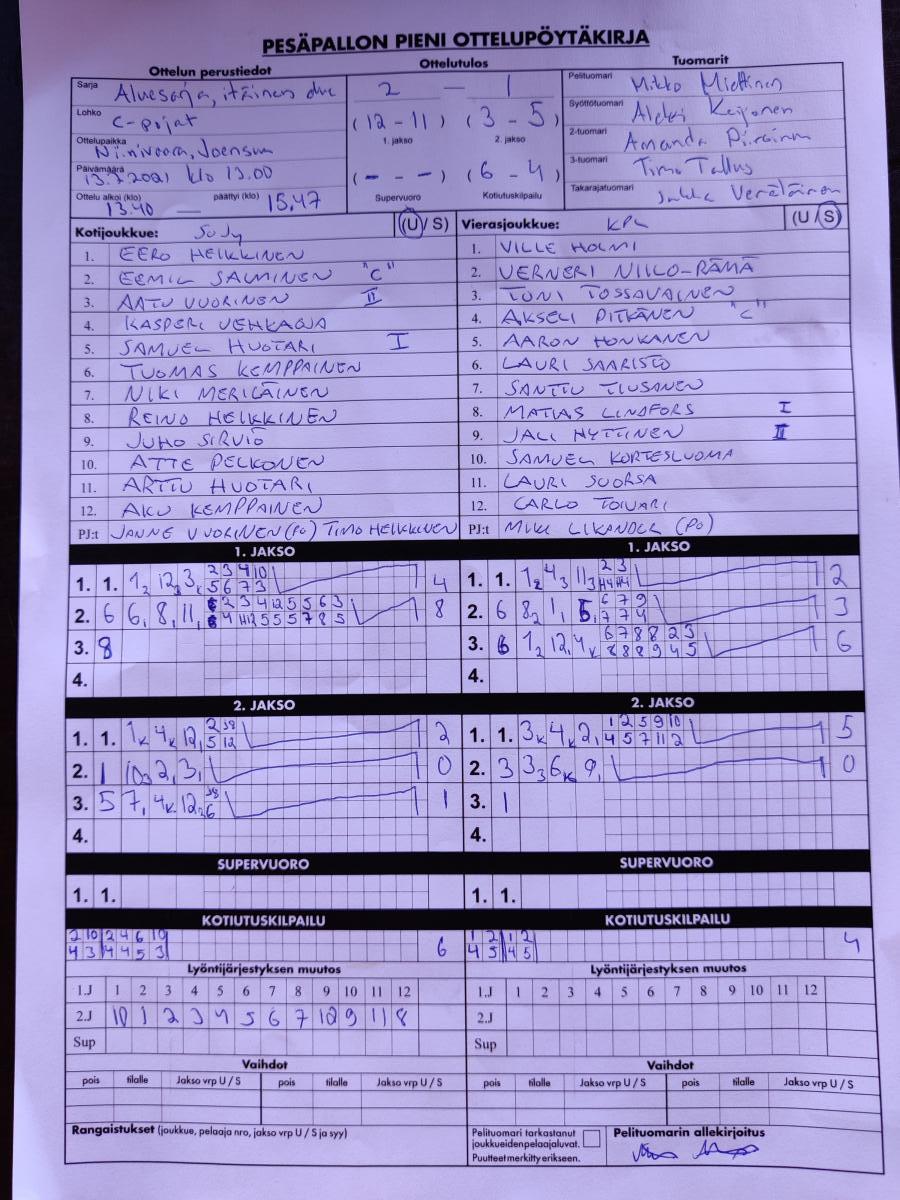 PESÄPALLON PIENI OTTELUPÖYTÄKIRJA
Ottelun perustiedot
Sarja Aluesarja, itäinen
Lohko C-pojat
Ottelupaikka Niinivaara, Joensuu
Päivämäärä 13.2021 klo 13.00
Ottelu alkoi (klo) 13.40 — päättyi (klo) 15.47
Ottelutulos
2 — 1
(12-11) (3-5)
1. jakso 2. jakso
(- - -) (6-4)
Supervuoro Kotiutuskilpailu
Tuomarit
Pelituomari Mikko Miettinen
Syöttötuomari Aleksi Keijonen
2-tuomari Amanda Piiroinen
3-tuomari Timo Tallus
Takarajatuomari Jukka Veräläinen
Kotijoukkue: SoJy (U / S)
1. EERO HEIKKINEN
2. EEMIL SALMINEN "C"
3. AATU VUORINEN II
4. KASPERI VEHKAOJA
5. SAMUEL HUOTARI I
6. TUOMAS KEMPPAINEN
7. NIKI MERILÄINEN
8. REINO HEIKKINEN
9. JUHO SIRVIÖ
10. ATTE PELKONEN
11. ARTTU HUOTARI
12. AKU KEMPPAINEN
PJ:t JANNE VUORINEN (PO) TIMO HEIKKINEN
Vierasjoukkue: KPL (U / S)
1. VILLE HOLMI
2. VERNERI NIILO-RÄMÄ
3. TONI TOSSAVAINEN
4. AKSELI PITKÄNEN "C"
5. AARON HONKANEN
6. LAURI SAARISTO
7. SANTTU TIUSANEN
8. MATIAS LINDFORS I
9. JALI HYTTINEN II
10. SAMUEL KORTESLUOMA
11. LAURI SUORSA
12. CARLO TOIVARI
PJ:t MIKE LIKANDER (PO)
1. JAKSO
1. 1. 1₂ 12₃ 3ₖ 2 3 4 10 4
5 6 7 3
2. 6 6, 8, 11, 2 3 4 12 5 5 6 3 8
4 11 12 5 5 5 7 8 5
3. 8
4.
1. JAKSO
1. 1. 1₂ 4₃ 11₃ 2 3 2
2. 6 8₂ 1, 5, 6 7 9 3
7 7 4
3. 6 1₂ 12, 4ₖ 6 7 8 8 2 3 6
8 8 8 9 4 5
4.
2. JAKSO
1. 1. 1ₖ 4ₖ 12, 2 2
5 12
2. 1 10₃ 2, 3, 0
3. 5 7, 4ₖ 12₂ 6 1
4.
2. JAKSO
1. 1. 3ₖ 4ₖ 2, 1 2 5 9 10 5
4 5 7 11 2
2. 3 3₃ 6ₖ 9, 0
3. 1
4.
SUPERVUORO
1. 1.
SUPERVUORO
1. 1.
KOTIUTUSKILPAILU
2 10 2 4 6 10 6
4 3 4 4 5 3
KOTIUTUSKILPAILU
1 2 1 2 4
4 5 4 5
Lyöntijärjestyksen muutos
1.J 1 2 3 4 5 6 7 8 9 10 11 12
2.J 10 1 2 3 4 5 6 7 12 9 11 8
Sup
Lyöntijärjestyksen muutos
1.J 1 2 3 4 5 6 7 8 9 10 11 12
2.J
Sup
Vaihdot
pois tilalle Jakso vrp U / S pois tilalle Jakso vrp U / S
Vaihdot
pois tilalle Jakso vrp U / S pois tilalle Jakso vrp U / S
Rangaistukset (joukkue, pelaaja nro, jakso vrp U / S ja syy)
Pelituomari tarkastanut
joukkueidenpelaajaluvat.
Puutteet merkitty erikseen.
Pelituomarin allekirjoitus